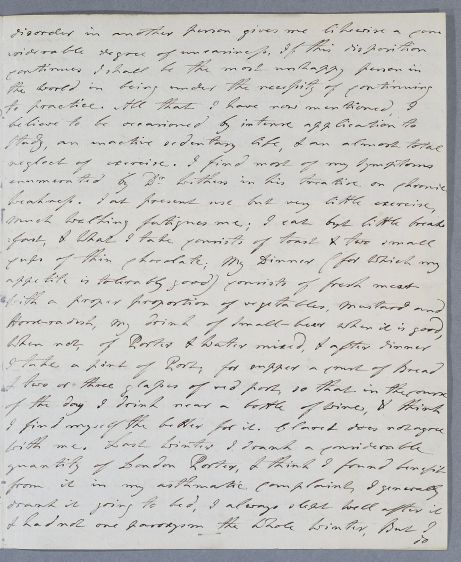 disorder in another person gives me likewise a con
siderable degree of uneasiness. If this disposition
continues I shall be the most unhappy person in
the world in being under the necessity of continuing
to practice. All that I have now mentioned, I
believe to be occasioned by intense application to
study, an unactive sedentary life, & an almost total
neglect of exercise. I find most of my symptoms
enumerated by Dr. Withers in his treatise on chronic
weakness. I at present use but very little exercise,
much walking fatigues me; I eat but little break
fast, & what I take consists of toast & two small
cups of thin chocolate; My Dinner (for which my
appetite is tolerably good) consists of fresh meat
with a proper proportion of vegetables, mustard and
Horseradish, my drink of small-beer when it is good,
when not, of Porter & Water mixed, & after dinner
I take a pint of Port; for supper a crust of Bread
& two or three glasses of red port, so that in the course
of the day I drink near a bottle of wine, & think
I find myself the better for it. Claret does not agree
with me. Last Winter I drank a considerable
quantity of London Porter, & think I found benefit
from it in my asthmatic complaint, I generally
drank it going to bed, I always slept well after it
& had not one paroxysm the whole Winter, But I
do